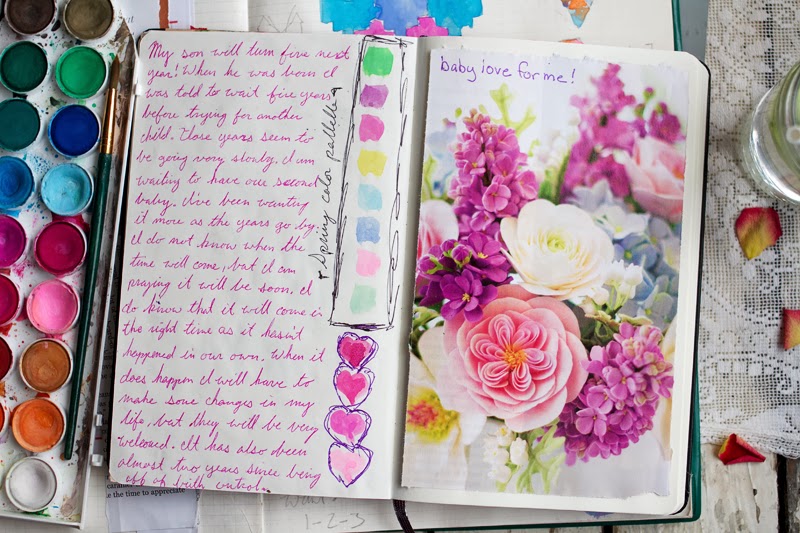 My son will turn five next
year! When he was born I
was told to wait five years
before trying for another
child. Those years seem to
be going very slowly. I am
waiting to have our second
baby. I've been wanting
it more as the years go by.
I do not know when the
time will come, but I am
praying it will be soon. I
do know that it will come in
the right time as it hasn't
happened in our own. When it
does happen I will have to
make some changes in my
life, but they will be very
welcomed. It has also been
almost two years since being
off of birth control.
Spring color pallette
baby love for me!
the time to appreciate
1-2-3